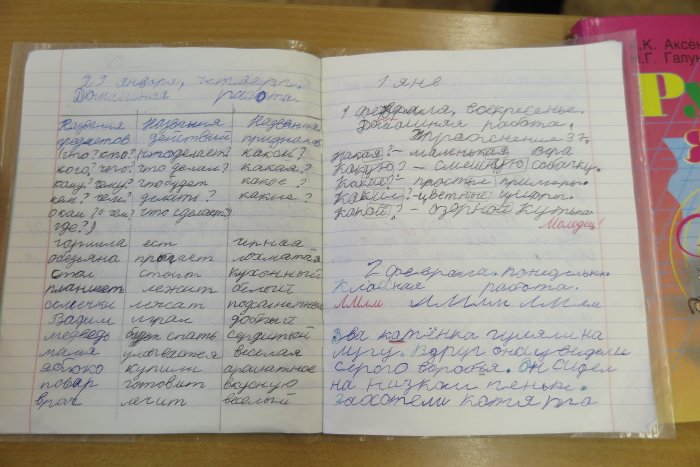 29 января, четверг.
Домашняя работа.
Названия Названия Названия
предметов действий признаков
(что? кто? что делает? какой?
кого? чего? что делали? какая?
кому? чему? что будет какое?
кем? чем? делать? какие?
о ком? о чём? что сделает?
где?)
горилла ест чёрная
обезьяна лохматая
стол стоит кухонный
планшет лежит белый
семечки лежат
Вадим играл добрый
медведь будет спать сердитый
мама улыбается весёлая
яблоко купили ароматное
повар готовит вкусную
врач лечит весёлый
1 янв
1 февраля, воскресенье.
Домашняя работа.
Упражнение 37.
Какая? – маленькая
Какую? – смешную собачку.
Какие? – простые примеры.
Какие? – цветные шары.
Какой? – озорной
Молодец!
2 февраля. понедельник.
Классная работа.
ЛМлм ЛМлм ЛМлм
Два катёнка гуляли на
лугу. Вдруг они увидели
серого воробья. он сидел
на низком пеньке.
захотели котята
К. Аксён
Г. Галун
РУ